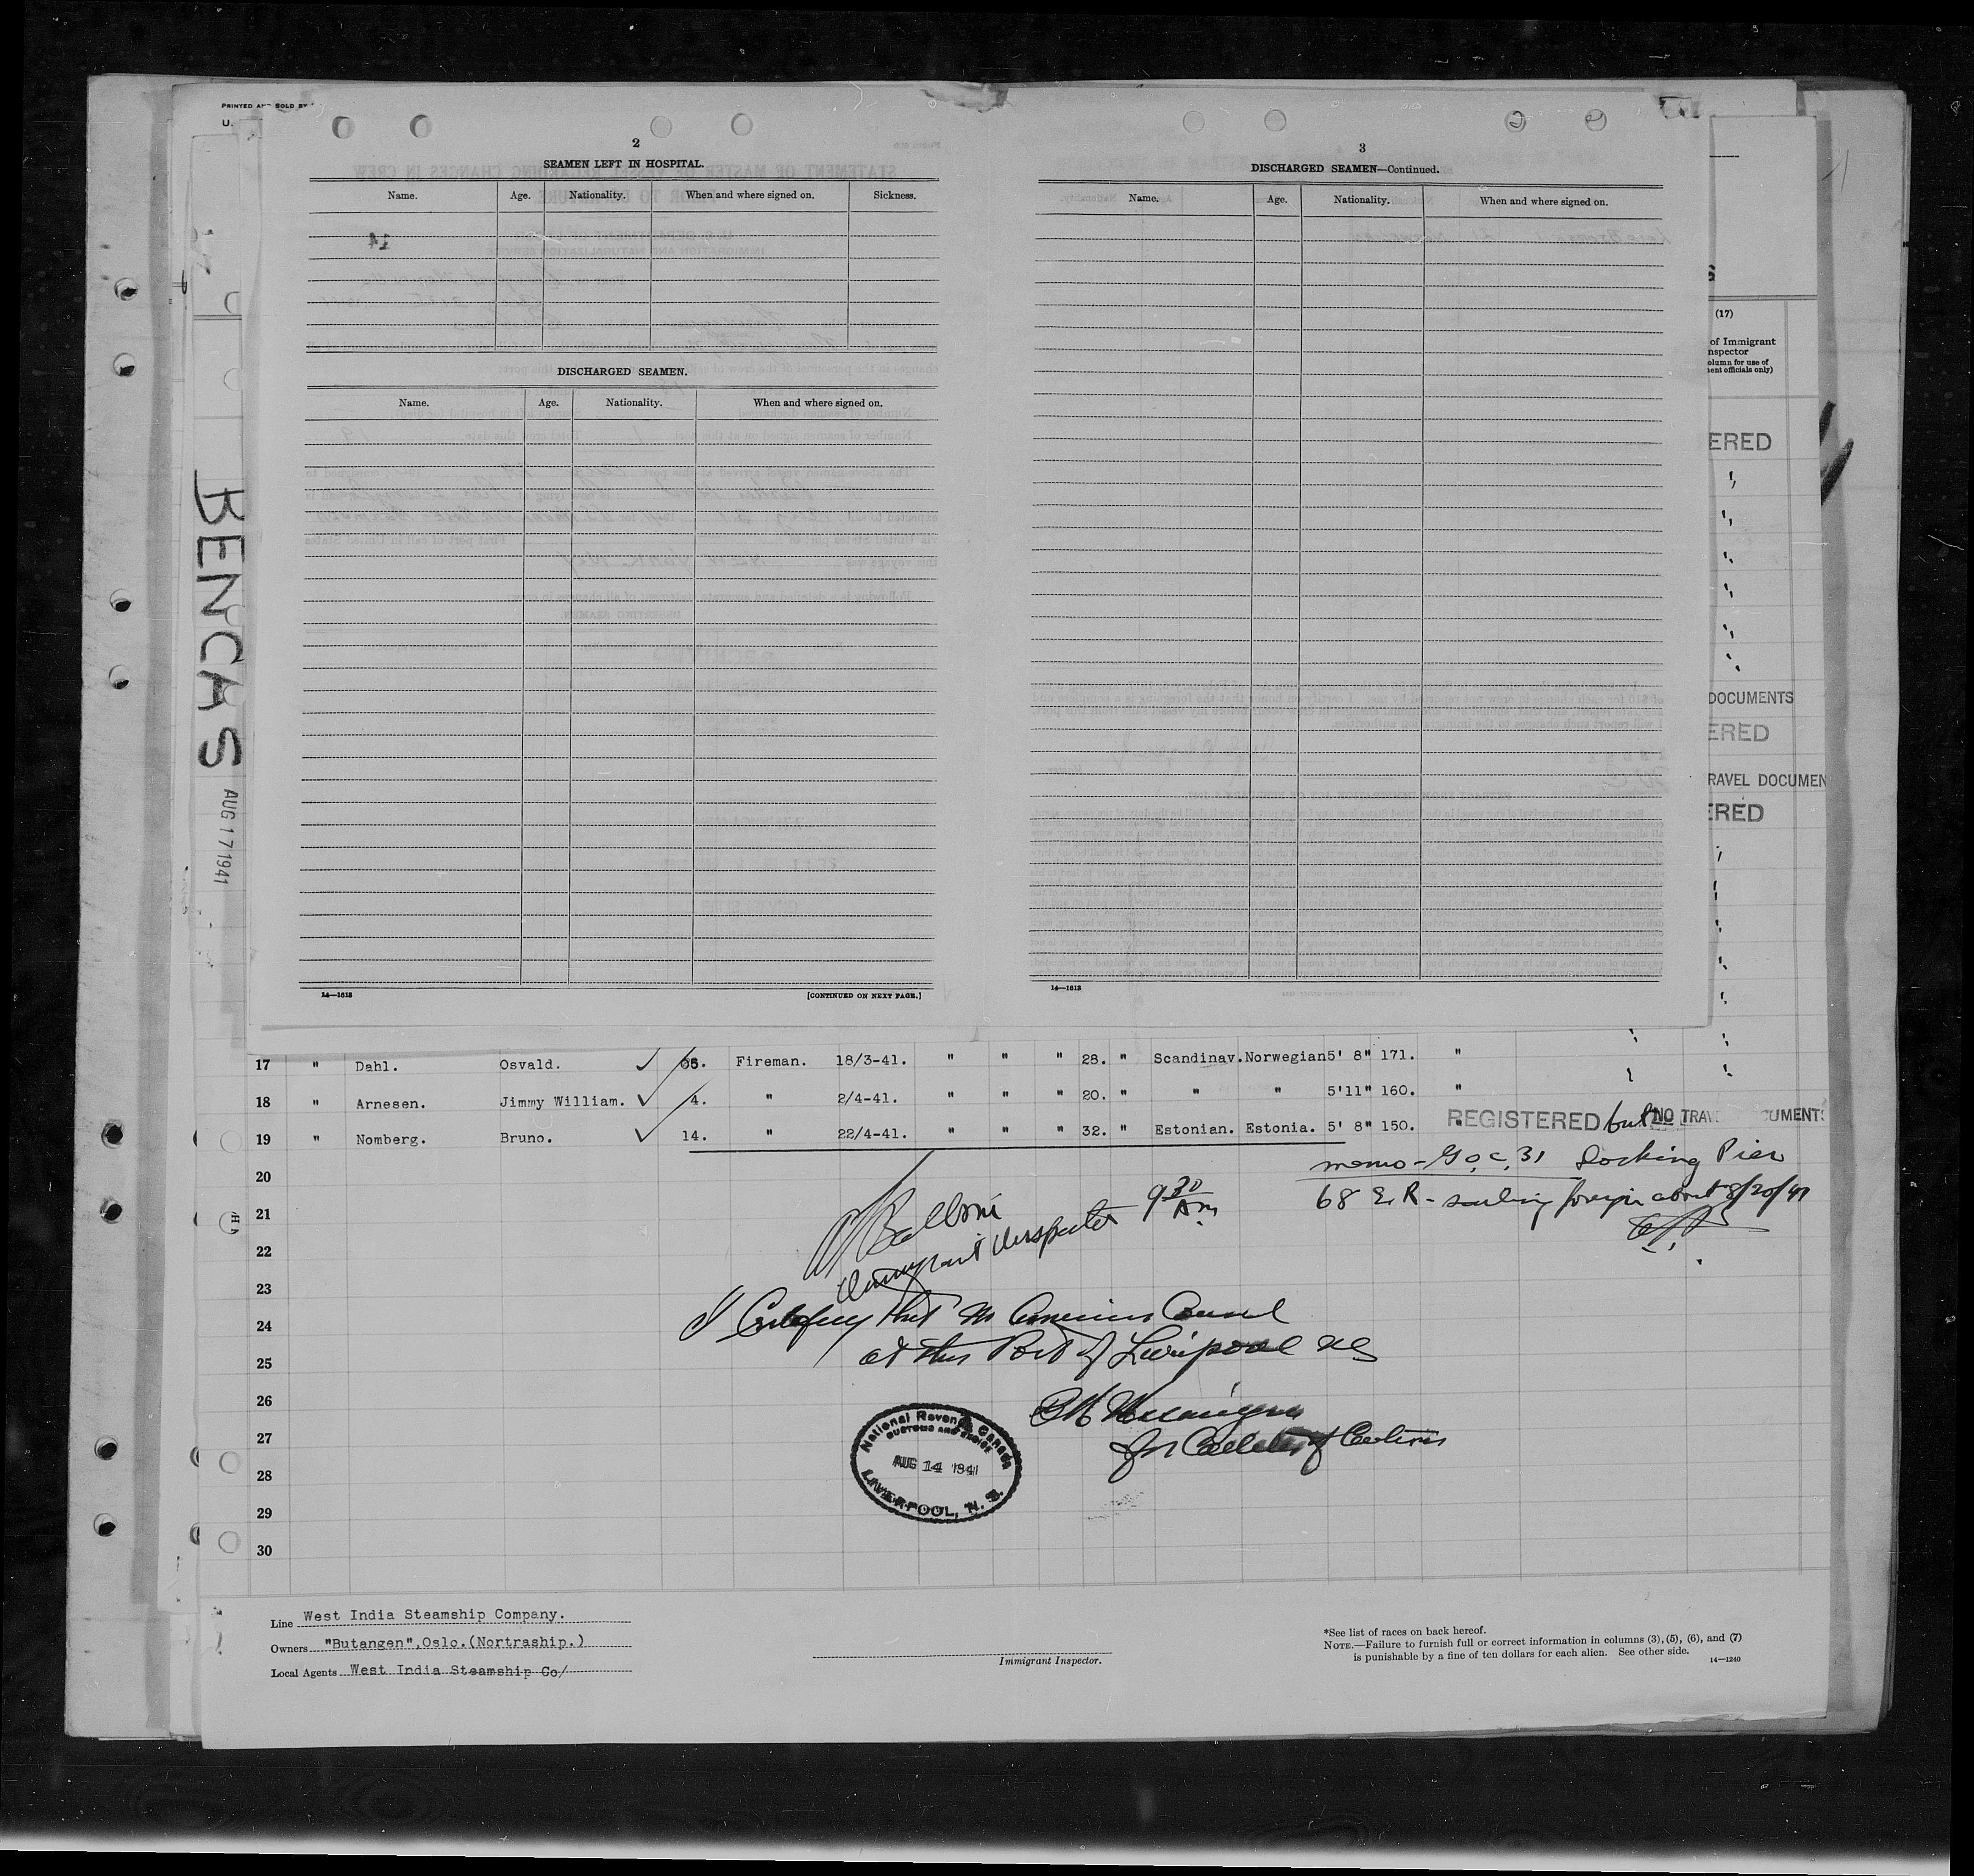 PRINTED AND SOLD BY
U.
2
SEAMEN LEFT IN HOSPITAL.
Name. Age. Nationality. When and where signed on. Sickness.
14
DISCHARGED SEAMEN.
Name. Age. Nationality. When and where signed on.
14—1613 [CONTINUED ON NEXT PAGE.]
3
DISCHARGED SEAMEN—Continued.
Name. Age. Nationality. When and where signed on.
14—1613
S
(17)
of Immigrant
nspector
olumn for use of
ent officials only)
ERED
DOCUMENTS
ERED
RAVEL DOCUMEN
ERED
BENCAS
AUG 17 1941
17 " Dahl. Osvald. 06. Fireman. 18/3-41. " " " 28. " Scandinav. Norwegian 5' 8" 171. "
18 " Arnesen. Jimmy William. 4. " 2/4-41. " " " 20. " " " 5'11" 160. "
19 " Nomberg. Bruno. 14. " 22/4-41. " " " 32. " Estonian. Estonia. 5' 8" 150. " REGISTERED but NO TRAV CUMENTS
20
memo - G.O.C. 31 Docking Pier
21
68 E.R - sailing foreign about 8/20/41
Balboni
Immigrant Inspector 9 30 Am
22
23
24
I Certify that no American Consul
25
at this Port of Liverpool NS
26
27
for Collector of Customs
National Revenue Canada
CUSTOMS AND EXCISE
AUG 14 1941
LIVERPOOL, N. S.
28
29
30
Line West India Steamship Company.
Owners "Butangen", Oslo. (Nortraship.)
Local Agents West India Steamship Co/
Immigrant Inspector.
*See list of races on back hereof.
NOTE.—Failure to furnish full or correct information in columns (3), (5), (6), and (7)
is punishable by a fine of ten dollars for each alien. See other side. 14—1240